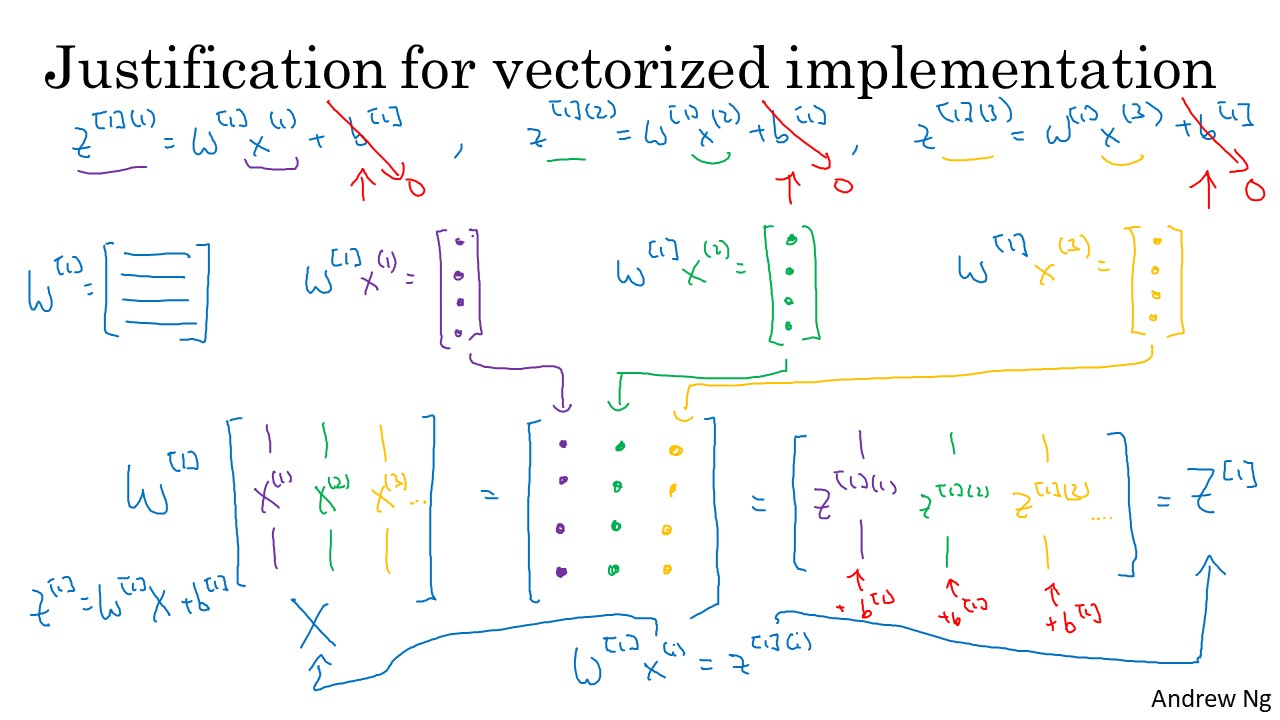 Justification for vectorized implementation
z^[1](1) = W^[1] x^(1) + b^[1] , z^[1](2) = W^[1] x^(2) + b^[1] , z^[1](3) = W^[1] x^(3) + b^[1]
0 0 0
W^[1] = [ ] W^[1] x^(1) = [ ] W^[1] x^(2) = [ ] W^[1] x^(3) = [ ]
W^[1] [ x^(1) x^(2) x^(3) ... ] = [ ] = [ z^[1](1) z^[1](2) z^[1](3) .... ] = Z^[1]
+ b^[1] + b^[1] + b^[1]
Z^[1] = W^[1] X + b^[1]
X
W^[1] x^(i) = z^[1](i)
Andrew Ng